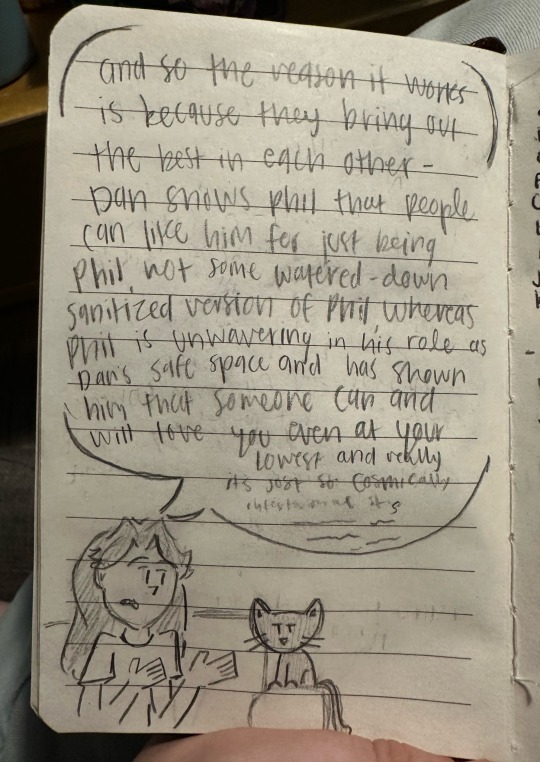 and so the reason it works
is because they bring out
the best in each other-
Dan shows Phil that people
can like him for just being
Phil, not some watered-down
sanitized version of Phil whereas
Phil is unwavering in his role as
Dan's safe space and has shown
him that someone can and
will love you even at your
lowest and really
its just so cosmically
it's